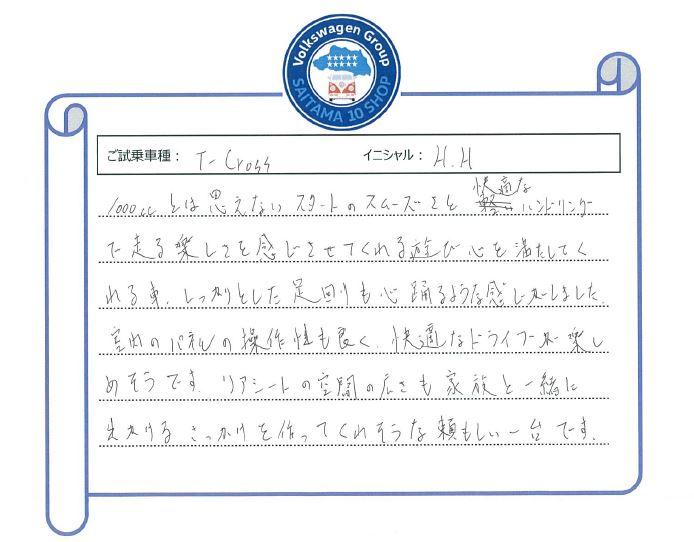 Volkswagen Group
SAITAMA 10 SHOP
ご試乗車種： T-Cross イニシャル： H.H
1000ccとは思えないスタートのスムーズさと快適なハンドリング
で走る楽しさを感じさせてくれる遊び心を満たしてく
れる車。しっかりとした足回りも心踊るような感じがしました。
室内のパネルの操作性も良く、快適なドライブが楽し
めそうです。リアシートの空間の広さも家族と一緒に
出かけるきっかけを作ってくれそうな頼もしい一台です。